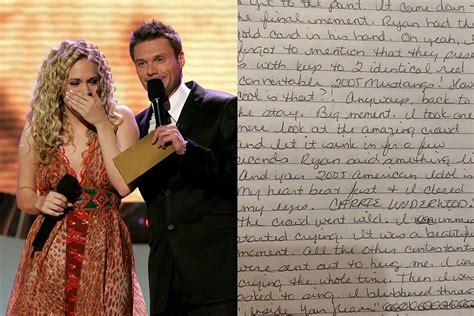 to the point. It came down
final moment. Ryan had the
gold card in his hand. Oh yeah,
forgot to mention that they prese
us with keys to 2 identical red
convertable, 2005 Mustangs! How
cool is that?! Anyways, back to
the story. Big moment. I took one
more look at the amazing crowd
and let it sink in for a few
seconds. Ryan said something li
And your 2005 American Idol is
my heart beat fast & I closed
my eyes. CARRIE UNDERWOOD!
the crowd went wild. I
started crying. It was a beautiful
moment. All the other contestants
were sent out to hug me. I was
crying the whole time. Then I was
asked to sing. I blubbered through
"Inside Your Heaven"